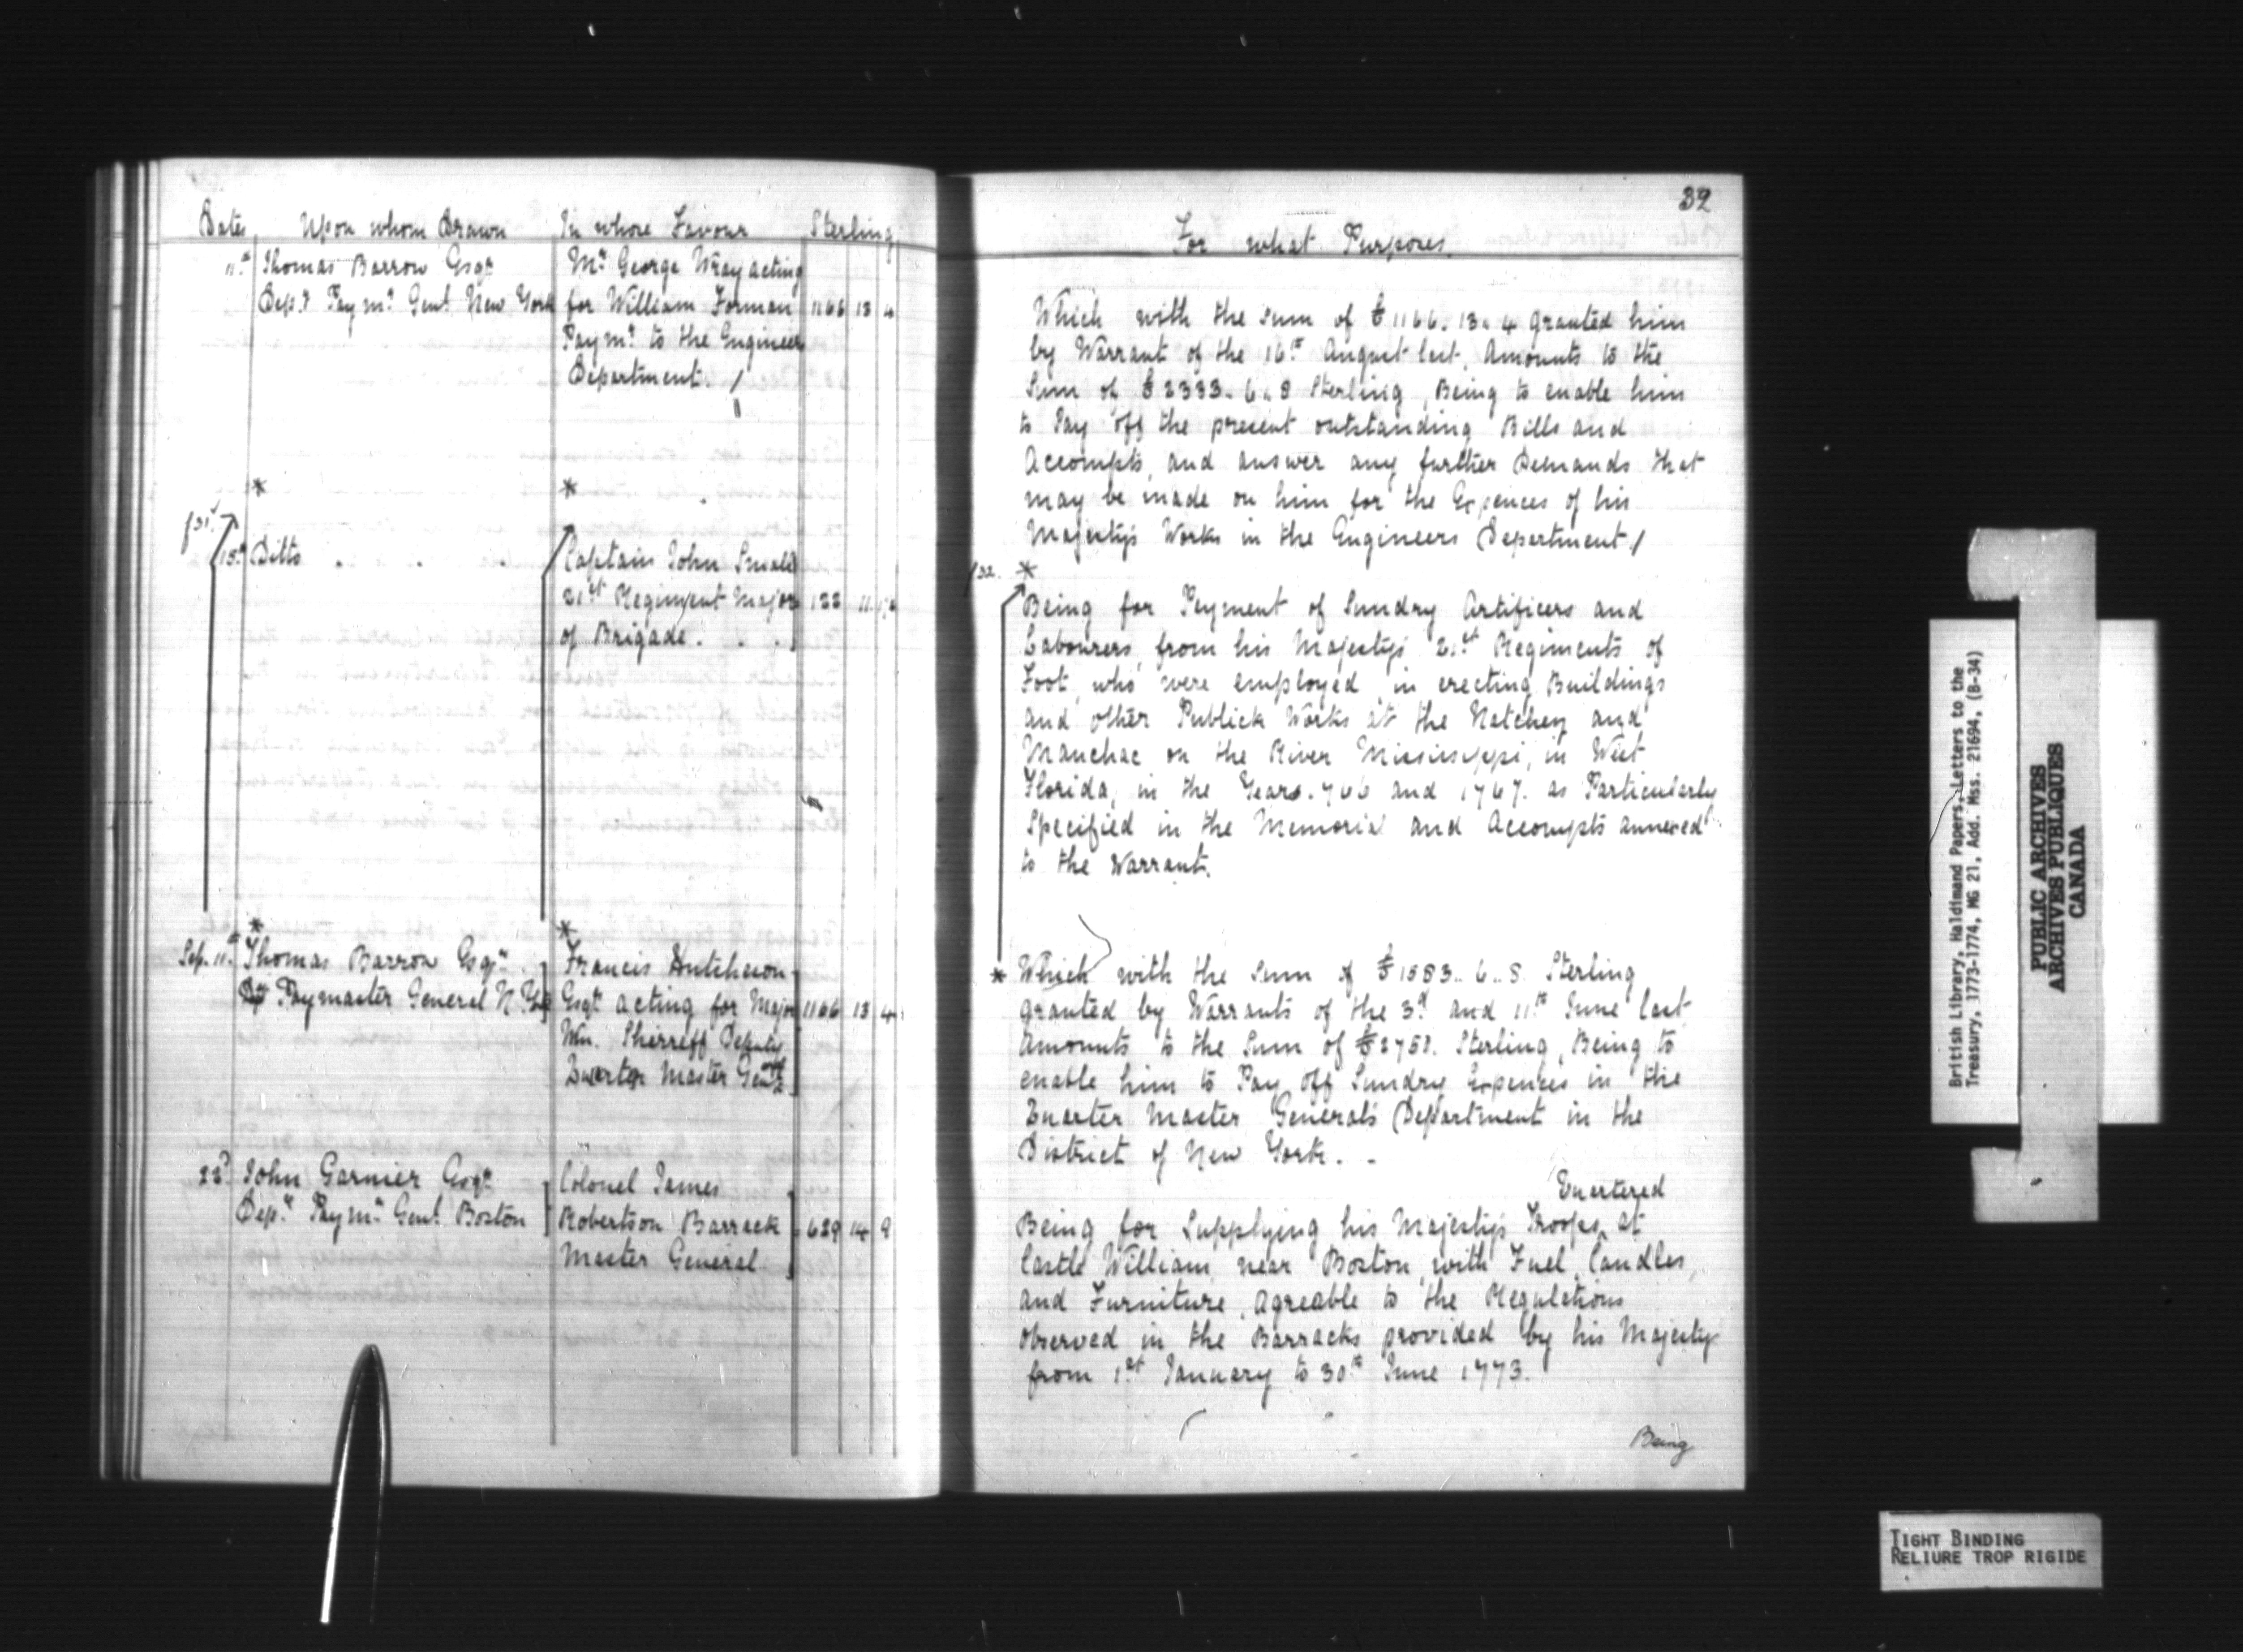 Dates Upon whom Drawn In whose Favour Sterling
11th Thomas Barrow Esqr Mr George Wray acting
Depy Paymr Genl New York for William Forman 1166 13 4
Paymr to the Engineer
Department. /
* *
f31v
15th Ditto . . . Captain John Small
21st Regiment Major 122 11
of Brigade. . .
* *
Sep. 11th Thomas Barrow Esqr. Francis Hutcheson
Paymaster General N. York Esqr acting for Major 1166 13 4
Wm. Sherreff Deputy
Quarter Master Genl
22d John Garnier Esqr Colonel James
Depy Paymr Genl Boston Robertson Barrack 629 14 9
Master General
32
For what Purposes.
Which with the sum of £1166. 13. 4 granted him
by Warrant of the 16th August last, Amounts to the
Sum of £2333. 6. 8 Sterling, Being to enable him
to Pay off the present outstanding Bills and
Accompts, and answer any further Demands that
may be made on him for the Expences of his
Majesty's Works in the Engineers Department /
f32. *
Being for Payment of Sundry Artificers and
Labourers, from his Majesty's 21st Regiments of
Foot, who were employed in erecting Buildings
and other Publick Works at the Natchez and
Manchac on the River Mississippi, in West
Florida, in the Years. 766 and 1767. as Particularly
Specified in the Memorial and Accompts annexed
to the Warrant.
* Which with the Sum of £1583.. 6.. 8. Sterling
granted by Warrants of the 3d and 11th June last
Amounts to the Sum of £2750. Sterling, Being to
enable him to Pay off Sundry Expences in the
Quarter Master General's Department in the
District of New York. -
Quartered
Being for Supplying his Majesty's Troops ^ at
Castle William near Boston, with Fuel, Candles,
and Furniture, agreable to the Regulations
observed in the Barracks provided by his Majesty
from 1st January to 30th June 1773.
Being
British Library, Haldimand Papers, Letters to the
Treasury, 1773-1774, MG 21, Add. Mss. 21694, (B-34)
PUBLIC ARCHIVES
ARCHIVES PUBLIQUES
CANADA
TIGHT BINDING
RELIURE TROP RIGIDE